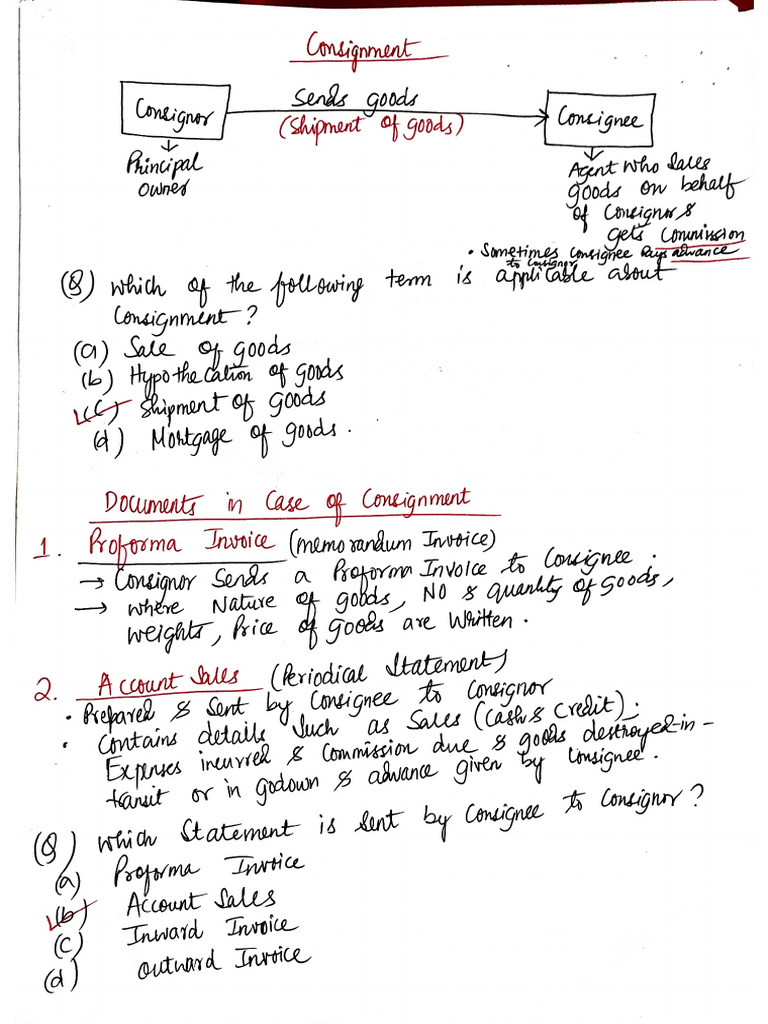 Consignment
Consignor
Sends goods
(Shipment of goods)
Consignee
Principal
owner
Agent who Sales
goods on behalf
of Consignor &
gets Commission
• Sometimes Consignee Pays advance
to Consignor
(Q) which of the following term is applicable about
Consignment?
(a) Sale of goods
(b) Hypothecation of goods
(c) Shipment of goods
(d) Mortgage of goods.
Documents in Case of Consignment
1. Proforma Invoice (memorandum Invoice)
→ Consignor Sends a Proforma Invoice to Consignee.
→ where Nature of goods, No & quantity of goods,
weights, Price of goods are written.
2. Account Sales (Periodical Statement)
• Prepared & Sent by Consignee to Consignor
• Contains details Such as Sales (Cash & Credit);
Expenses incurred & Commission due & goods destroyed-in-
transit or in godown & advance given by Consignee.
(Q) which Statement is sent by Consignee to Consignor?
(a) Proforma Invoice
(b) Account Sales
(c) Inward Invoice
(d) outward Invoice